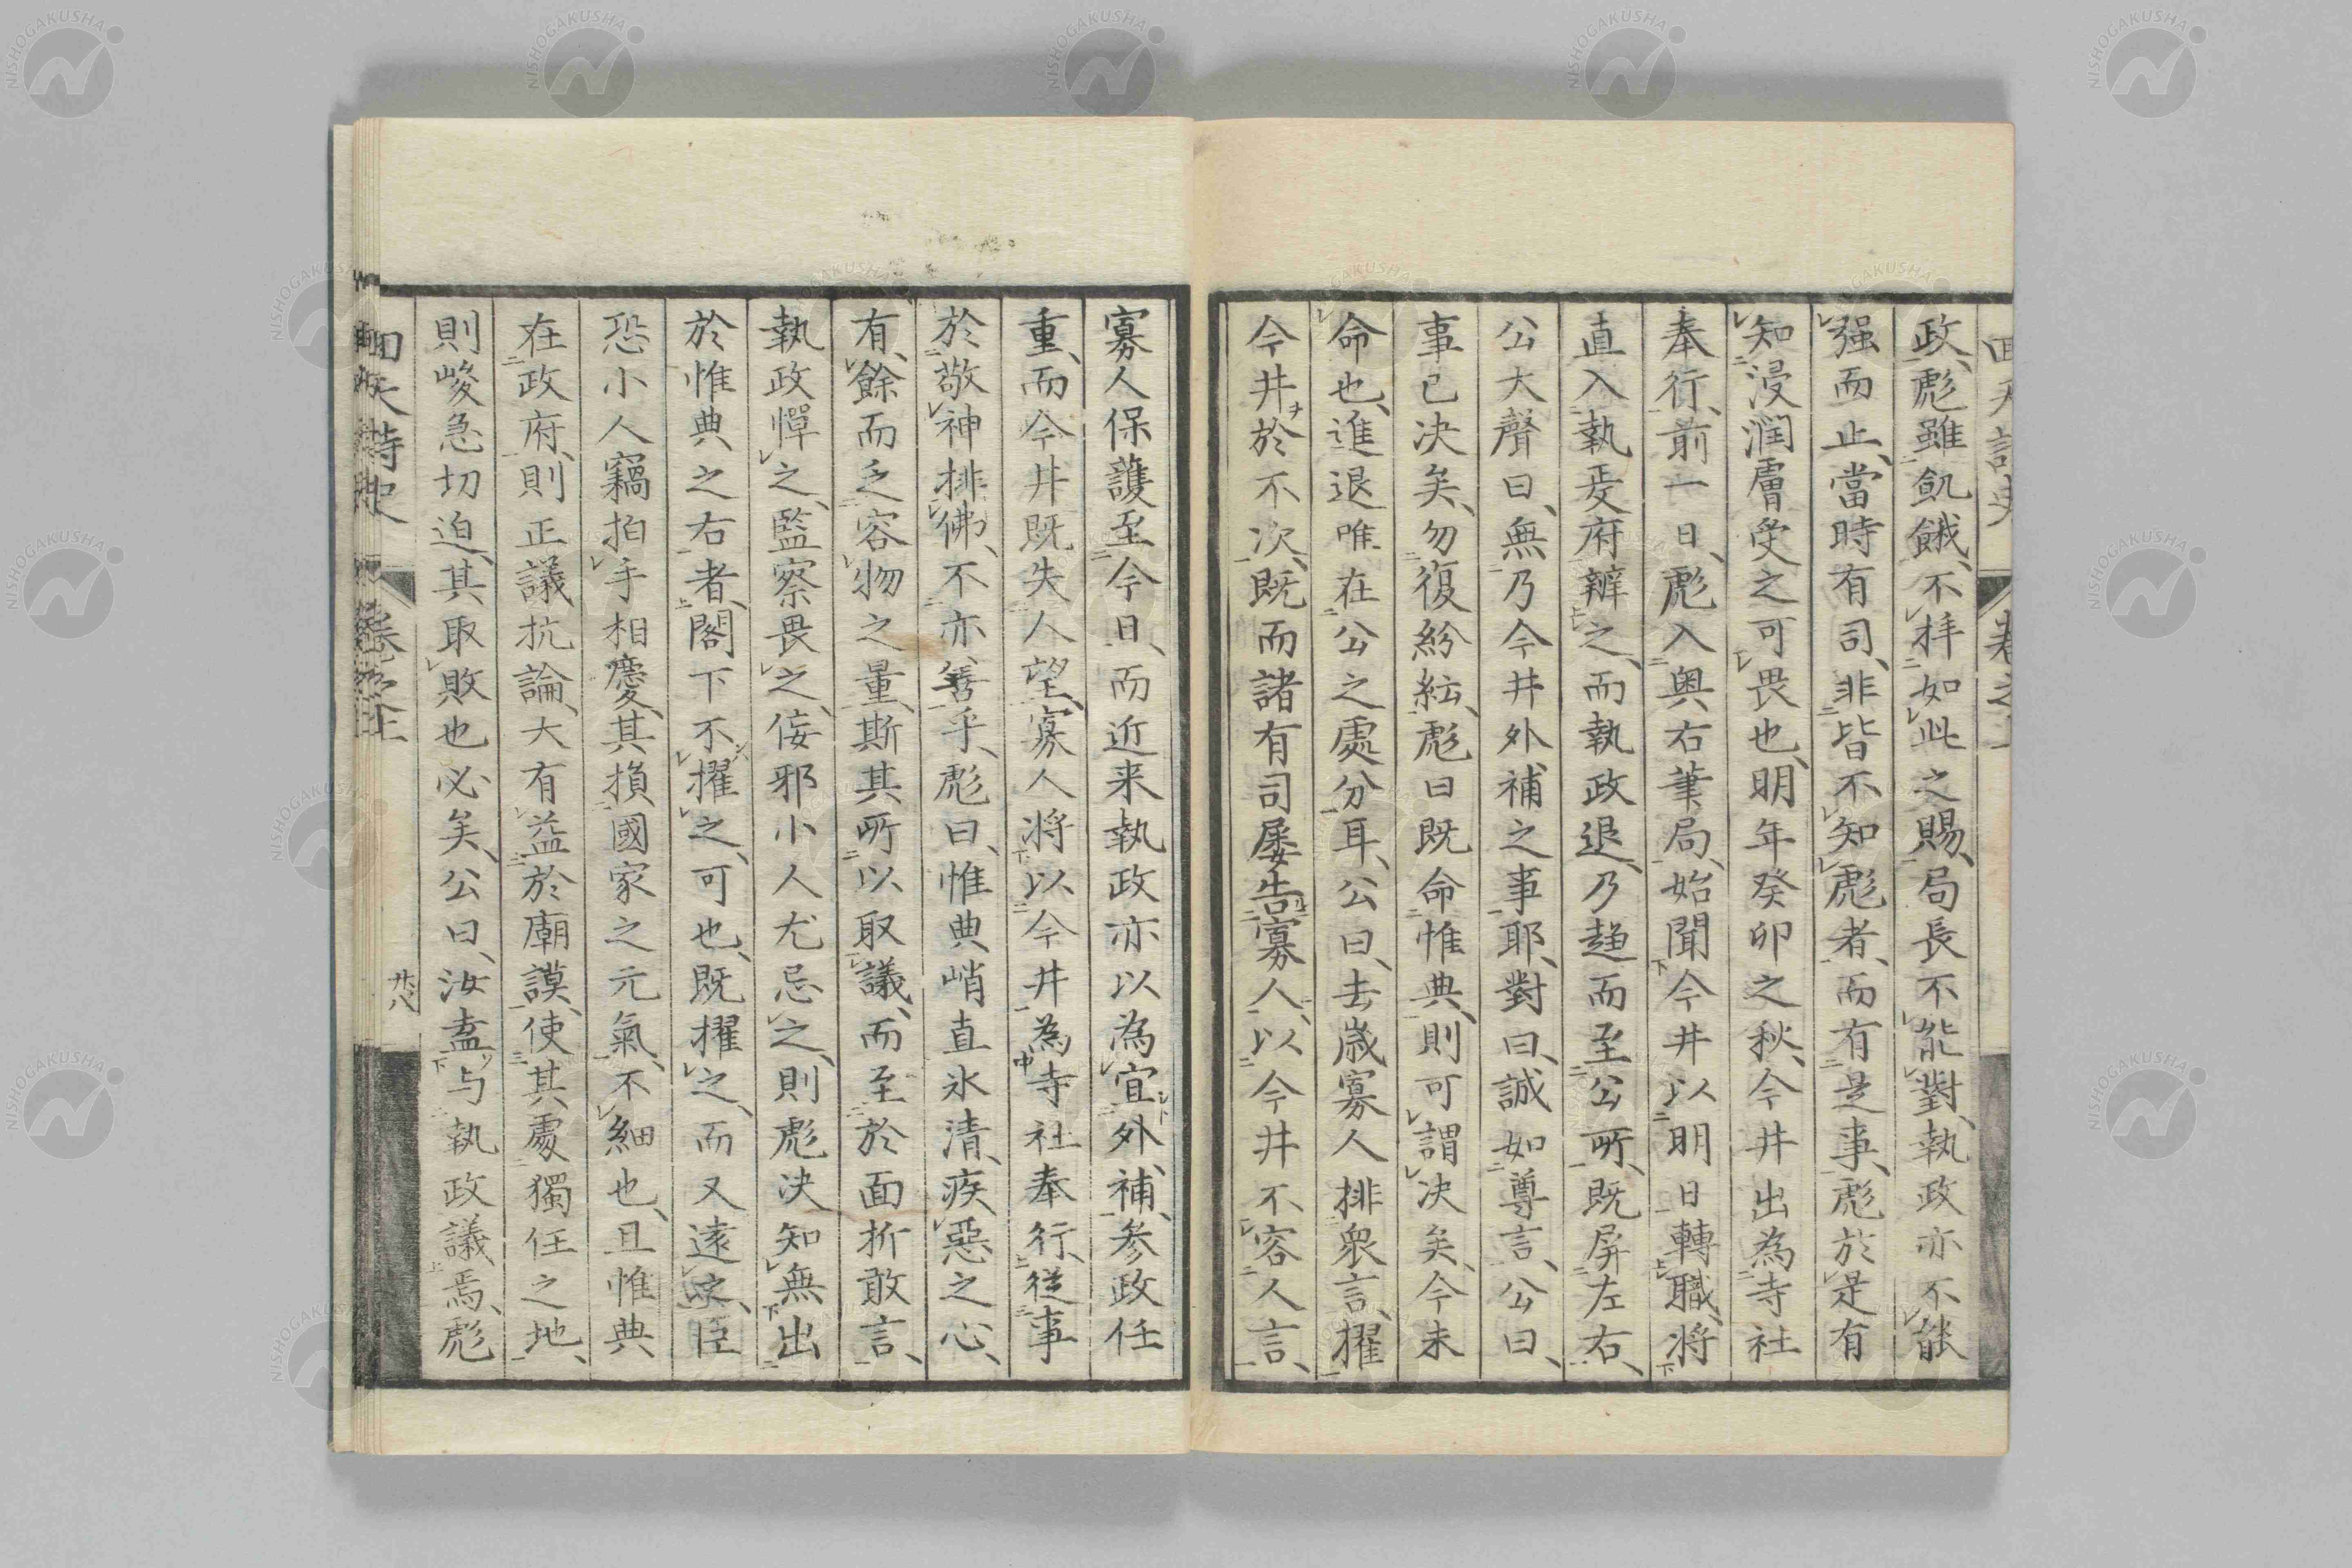 政、彪雖飢餓、不拝如此之賜、局長不能對、執政亦不能
强而止、當時有司、非皆不知彪者、而有是事、彪於是有
知浸潤膚受之可畏也、明年癸卯之秋、今井出為寺社
奉行、前一日、彪入奥右筆局、始聞今井以明日轉職、将
直入執政府辨之、而執政退、乃趨而至公所、既屏左右、
公大聲曰、無乃今井外補之事耶、對曰、誠如尊言、公曰、
事已决矣、勿復紛紜、彪曰既命惟典、則可謂决矣、今未
命也、進退唯在公之處分耳、公曰、去歳寡人排衆言、擢
今井於不次、既而諸有司屡告寡人、以今井不容人言、
寡人保護至今日、而近来執政亦以為宜外補、参政任
重、而今井既失人望、寡人将以今井為寺社奉行、從事
於敬神排佛、不亦善乎、彪曰、惟典峭直氷清、疾惡之心、
有餘而乏容物之量、斯其所以取議、而至於面折敢言、
執政憚之、監察畏之、佞邪小人尤忌之、則彪决知無出
於惟典之右者、閣下不擢之、可也、既擢之、而又遠之、臣
恐小人竊拍手相慶、其損國家之元氣、不細也、且惟典
在政府、則正議抗論、大有益於廟謨、使其處獨任之地、
則峻急切迫、其取敗也必矣、公曰、汝盍与執政議焉、彪
回天詩史
卷之上
廿八